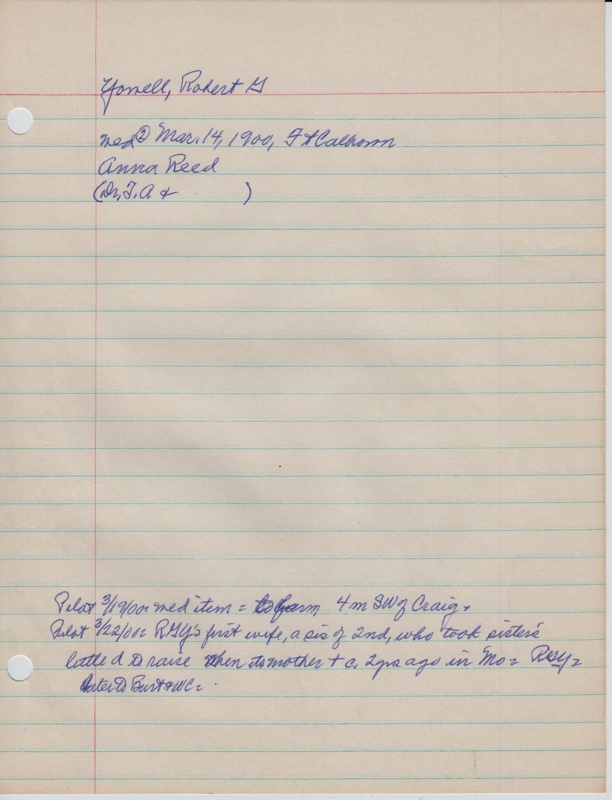 Yowell, Robert G
wed ② Mar. 14, 1900, Ft Calhoun
Anna Reed
(Dr. T. A + )
Pilot 3/19/00: wed item = to farm 4 m SW of Craig.
Pilot 3/22/00: RGY's first wife, a sis of 2nd, who took sister's
little d to raise when its mother + c. 2 yrs ago in Mo = RGY =
inter to Burt + WC =